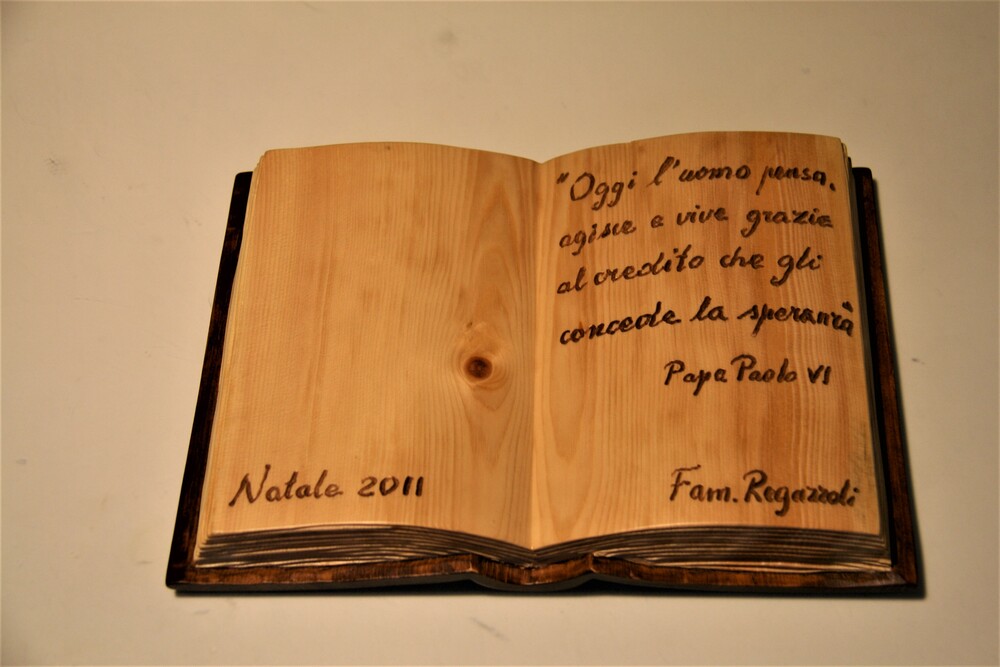 "Oggi l'uomo pensa,
agisce e vive grazie
al credito che gli
concede la speranza"
Papa Paolo VI
Natale 2011
Fam. Regazzoli